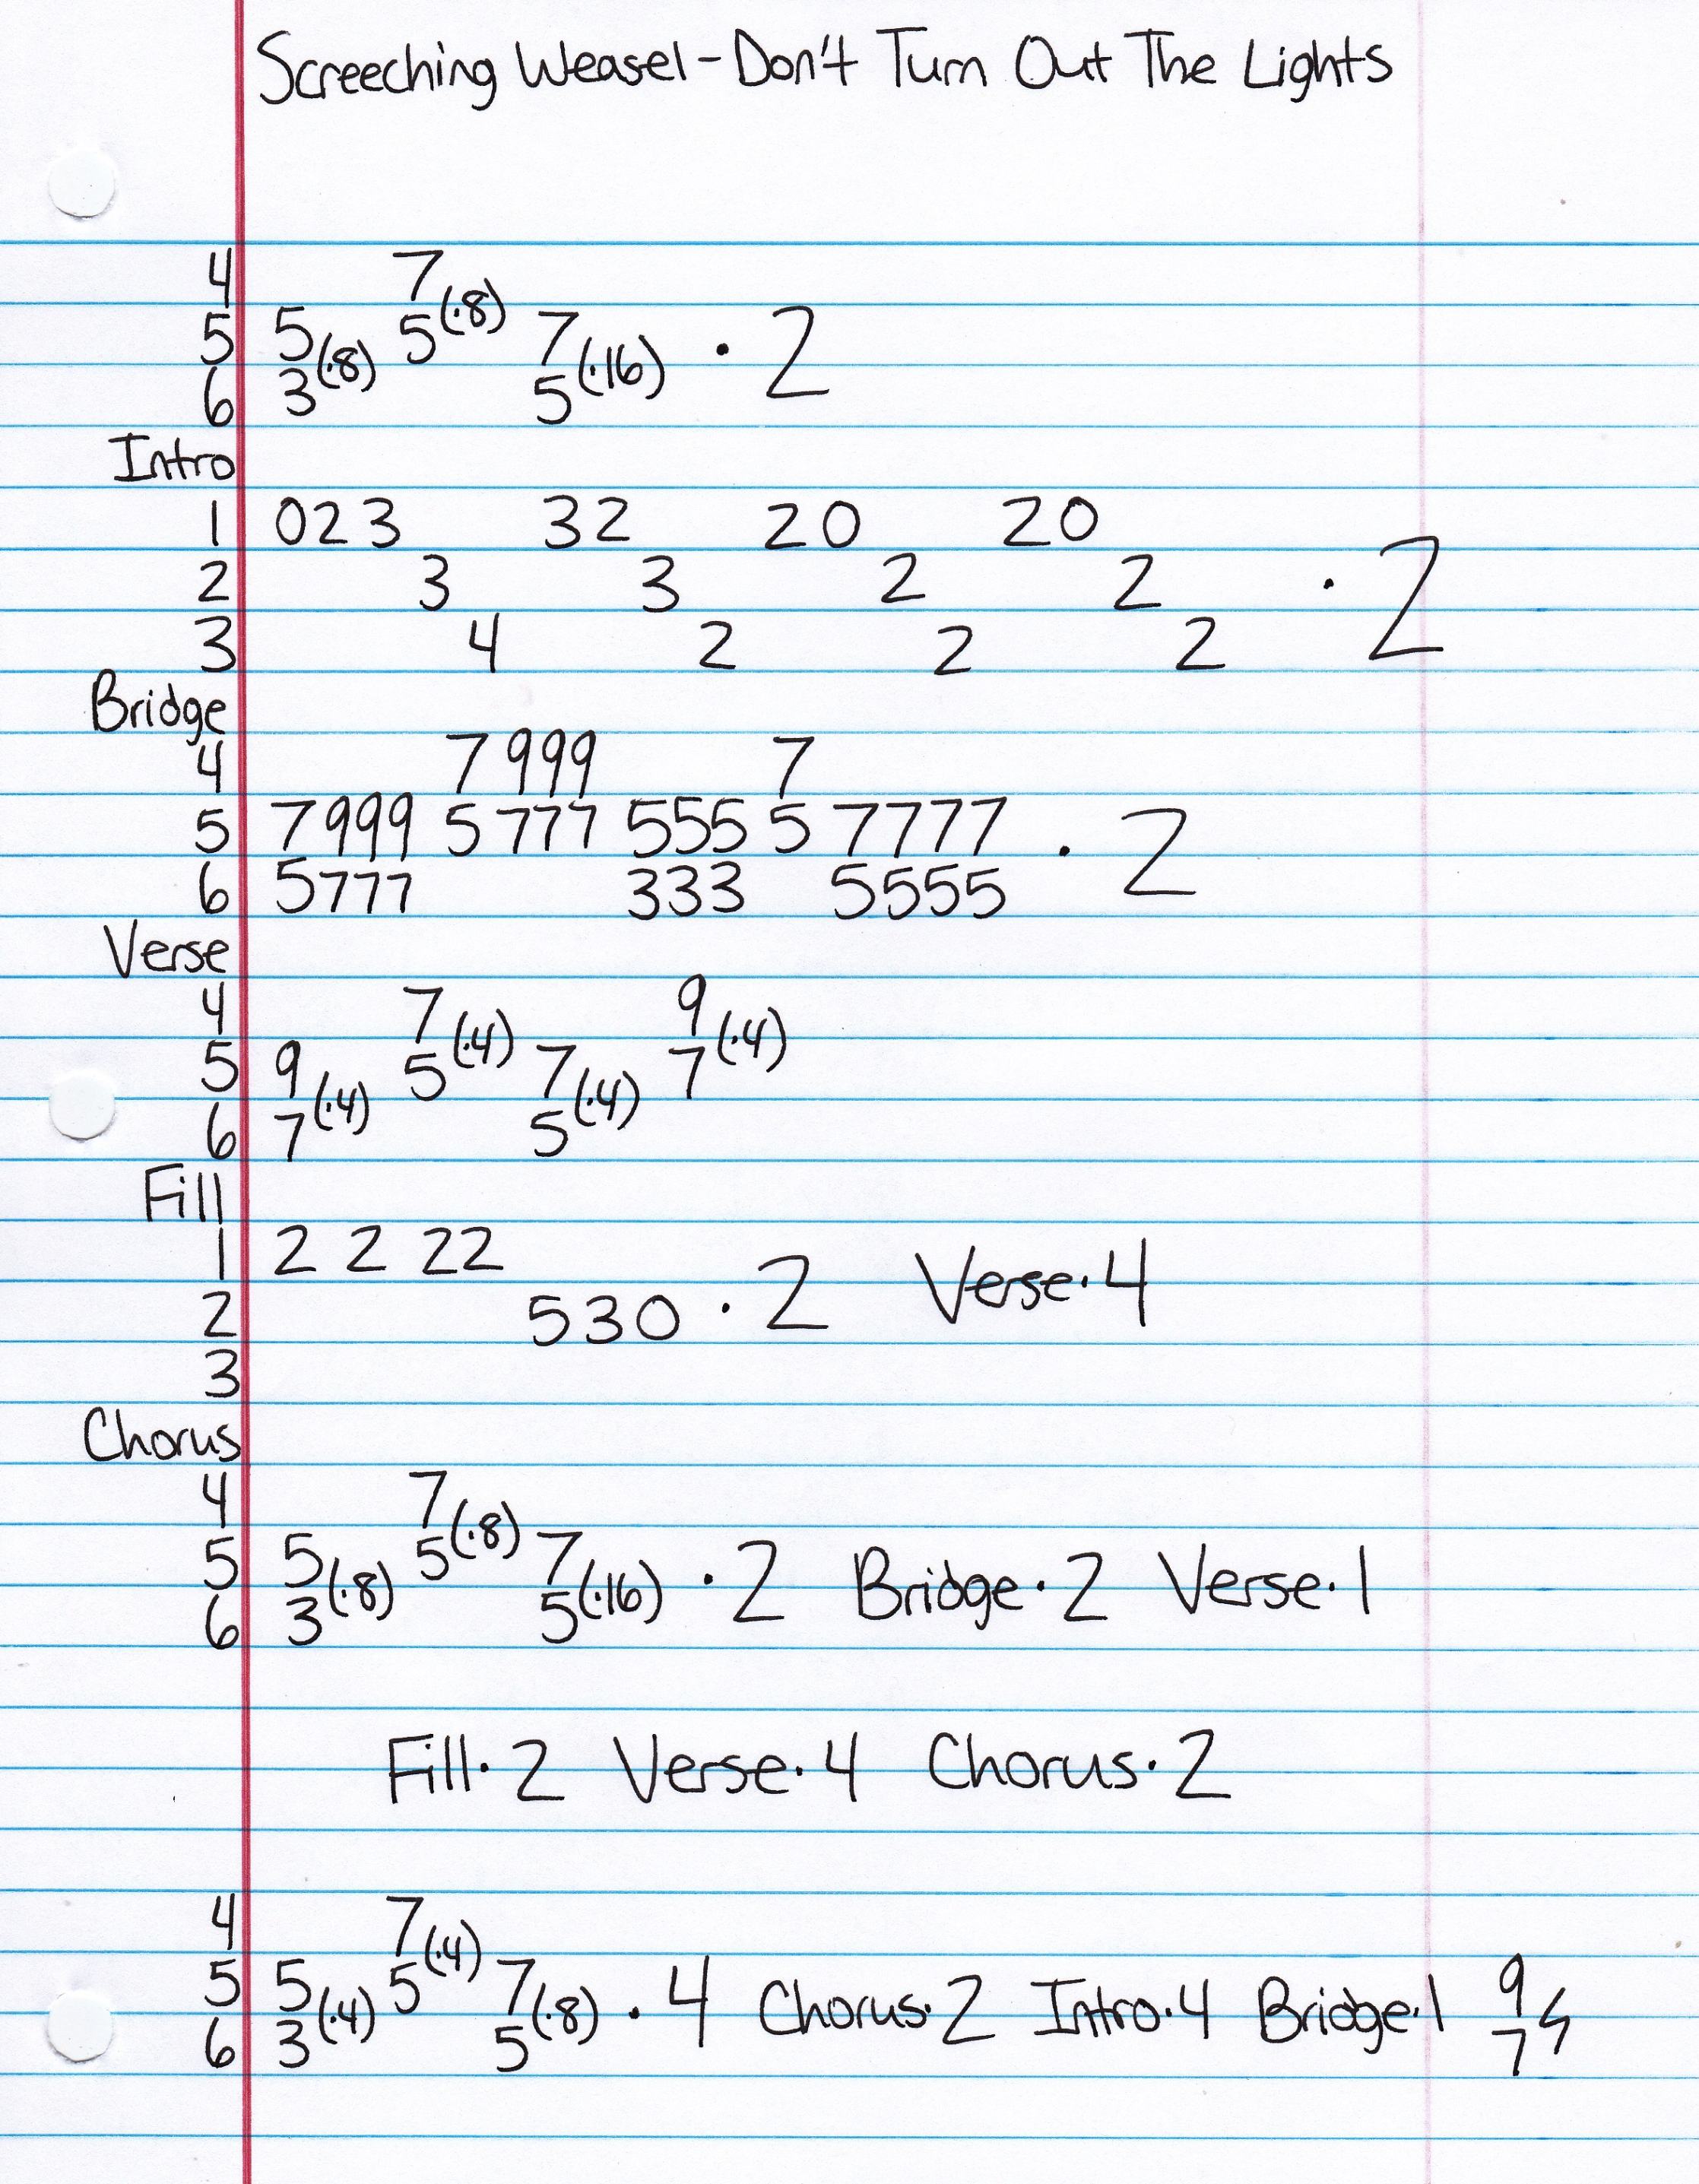 Screeching Weasel - Don't Turn Out The Lights
4 7
5 5(·8) 5(·8) 7 · 2
6 3 5(·16)
Intro
1 023 32 20 20
2 3 3 2 2 · 2
3 4 2 2 2
Bridge
4 7 999 7
5 7999 5 777 555 5 7777 · 2
6 5777 333 5555
Verse
4 7 9
5 9 5(·4) 7 7(·4)
6 7(·4) 5(·4)
Fill
1 2 2 22
2 530 · 2 Verse·4
3
Chorus
4 7
5 5 5(·8) 7 · 2 Bridge·2 Verse·1
6 3(·8) 5(·16)
Fill·2 Verse·4 Chorus·2
4 7
5 5 5(·4) 7 · 4 Chorus·2 Intro·4 Bridge·1 9
6 3(·4) 5(·8) 7